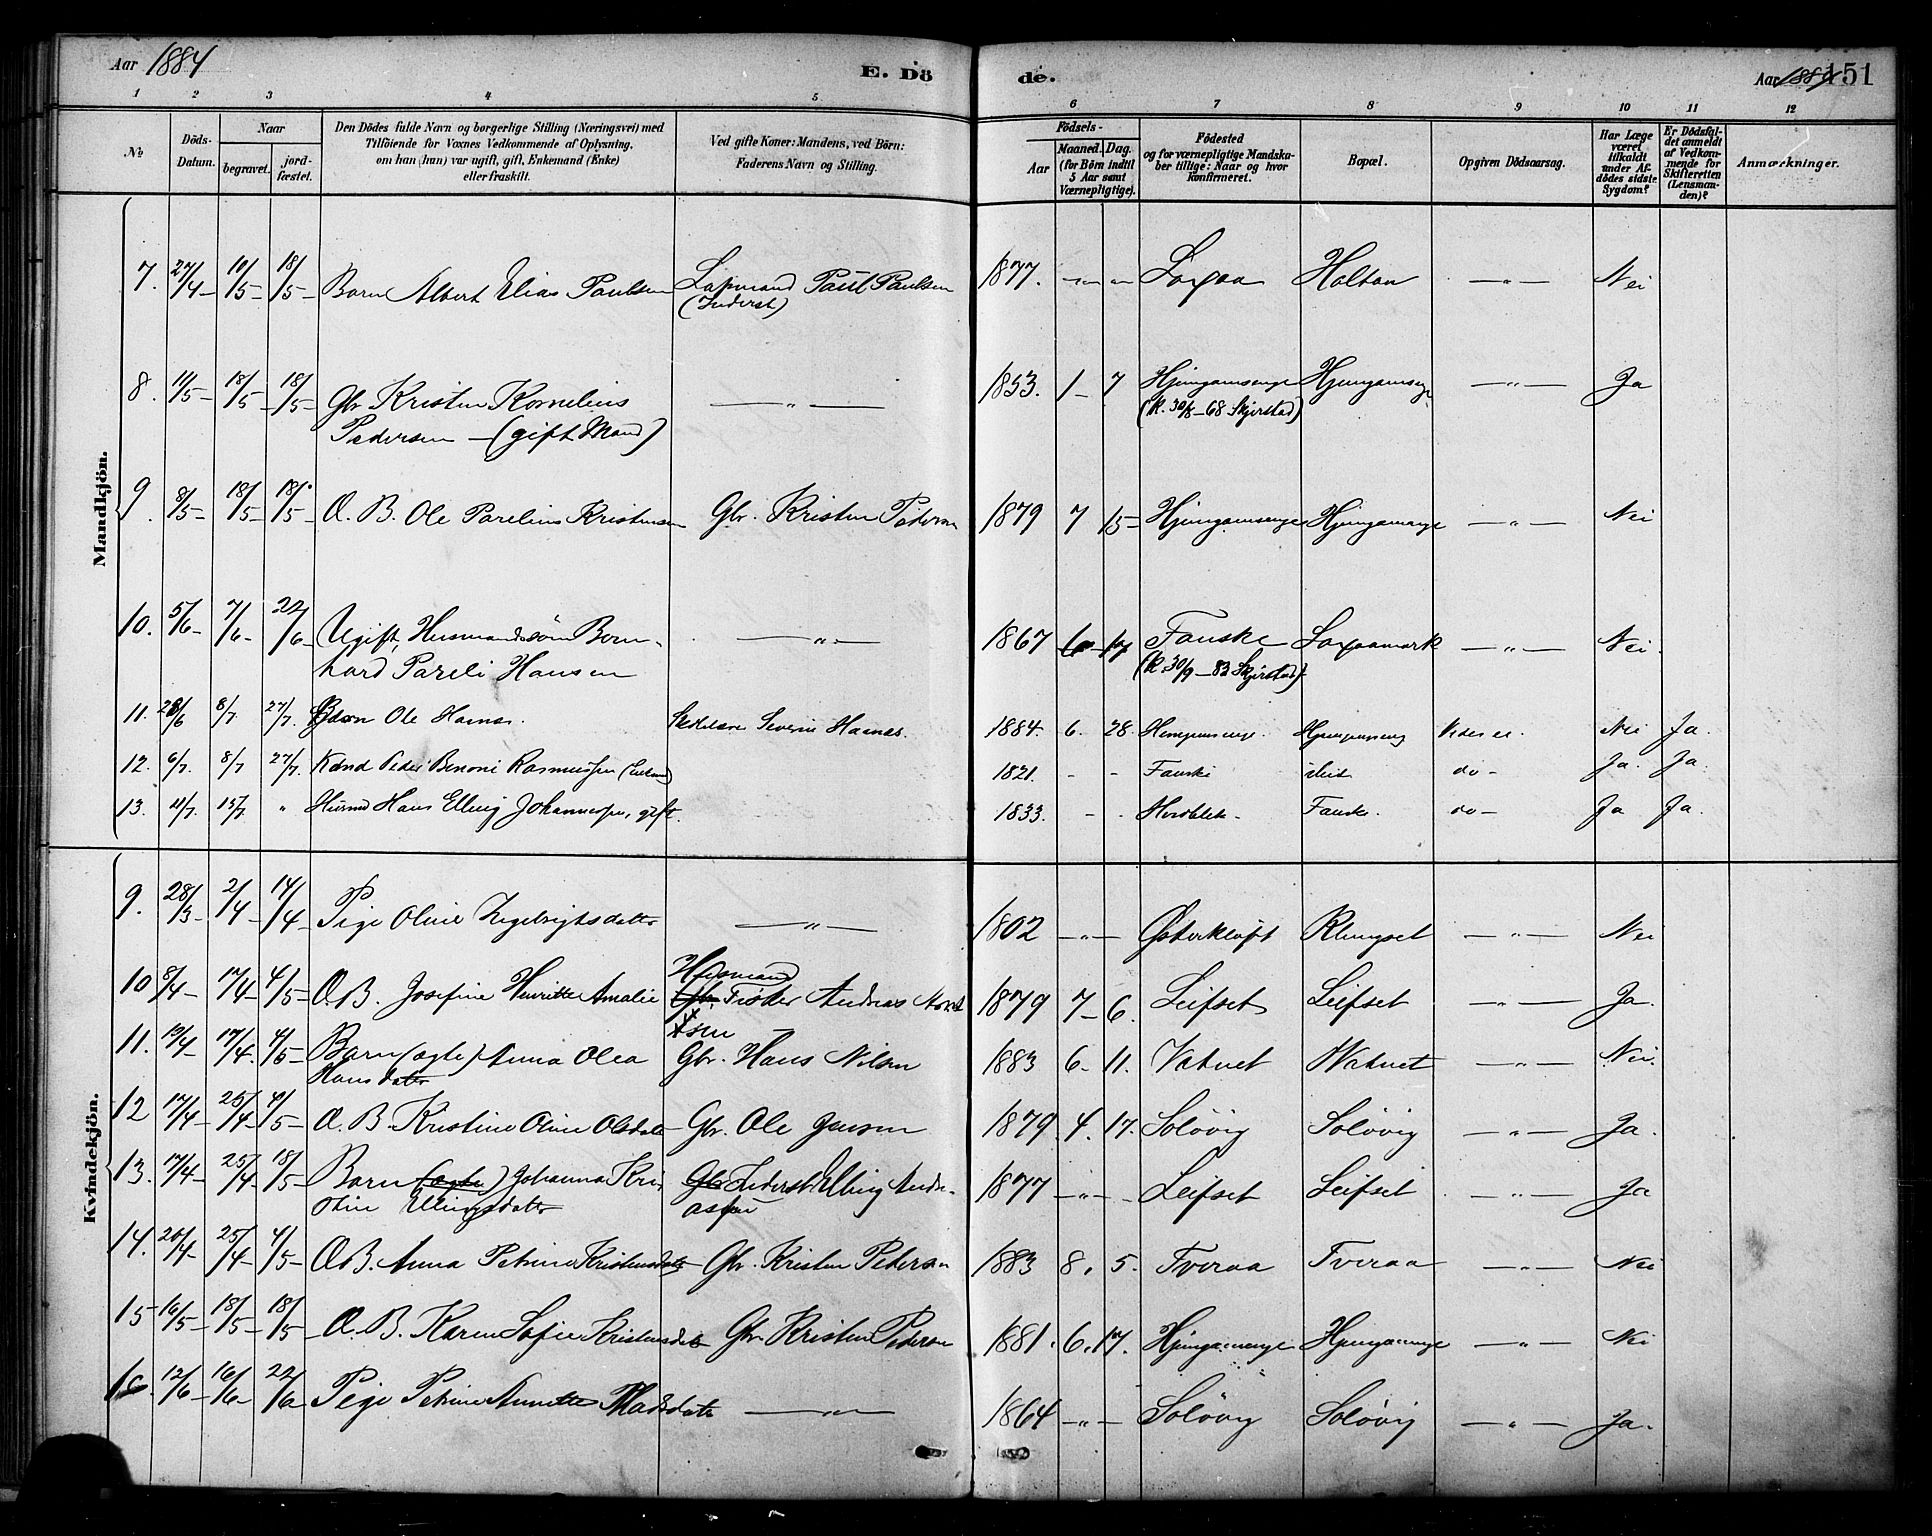 Aar 1884
E. Dö
de.
Aar 1884 151
1 2 3 4 5 6 7 8 9 10 11 12
No
Döds-Datum.
Naar
begravet.
jordfæstet.
Den Dödes fulde Navn og borgerlige Stilling (Næringsvei) med
Tilföiende for Voxnes Vedkommende af Oplysning,
om han (hun) var ugift, gift, Enkemand (Enke)
eller fraskilt.
Ved gifte Koner: Mandens, ved Börn:
Faderens Navn og Stilling.
Födsels-
Aar
Maaned. Dag.
(for Börn indtil
5 Aar samt
Værnepligtige).
Födested
og for værnepligtige Mandskaber tillige: Naar og hvor
konfirmeret.
Bopæl.
Opgiven Dödsaarsag.
Har Læge
været
tilkaldt
under Afdödes sidste
Sygdom?
Er Dödsfaldet anmeldt
af Vedkommende for
Skifteretten
(Lensmanden)?
Anmærkninger.
Mandkjön.
7. 27/4 10/5 18/5 Barn Albert Elias Paulsen Lapmand Paul Paulsen 1877. -„- „ Laxaa Holtan -„- Nei
(Inderst)
8. 11/5 18/5 18/5 Gbr Kristen Kornelius -„- 1853. 1 7 -„- Ja
Pedersen (gift Mand) (k. 30/8-68 Skjerstad)
9. 8/5 18/5 18/5 Æ. B. Ole Parelius Kristensen Gbr. Kristen Pedersen 1879 7 15 -„- Nei
10. 5/6 7/6 22/6 Ugift, Husmandssön Bern- -„- 1867 6 17 Fauske -„- Nei.
hard Pareli Hansen (k. 30/9-83 Skjerstad)
11. 28/6 8/7. 27/7. Ole Severin 1884. 6. 28. Nei Ja.
12. 6/7. 8/7 27/7. Peder Benoni Rasmussen 1821. - - Fauske do - Ja. Ja.
13. 11/7. 15/7. „ Husmd Hans Elling Johannessen, gift. 1833. - - Fauske. do - Ja Ja.
Kvindekjön.
9. 28/3 2/4 14/4 Pige Oline Ingebrigtsdatter -„- 1802 -„- Østerkløft Klungset -„- Nei
10 8/4 17/4 4/5 Æ.B. Josefine Henritte Amalie Husmand Fisker Andreas 1879 7 6. Leifset Leifset -„- Ja.
11. 13/4 17/4. 4/5 Barn (ægte) Anna Olea Gbr. Hans Nilsen 1883 6. 11. Vatnet Vatnet -„- Nei.
Hansdatter
12 17/4 25/4 4/5 Æ. B. Kristine Oline Olsdatter Gbr. Ole Jensen 1879. 4. 17. Soløvig Soløvig -„- Ja.
13. 17/4 25/4 18/5 Barn (ægte) Johanna Kri- Gbr Inderst Elling Andre- 1877 -„- Leifset Leifset -„- Ja
stine Ellingsdatter assen
14. 20/4 25/4 4/5 Æ.B. Anna Petrine Kristensdatter Gbr. Kristen Pedersen 1883 8. 5. Tveraa Tveraa -„- Nei
15 16/5 18/5 18/5 Æ. B. Karen Sofie Kristensdatter Gbr. Kristen Pedersen 1881. 6. 17. -„- Nei
16. 12/6 16/6 22/6 Pige Petrine Annette Madsdatter -„- 1864 -„- Soløvig Soløvig -„- Ja.